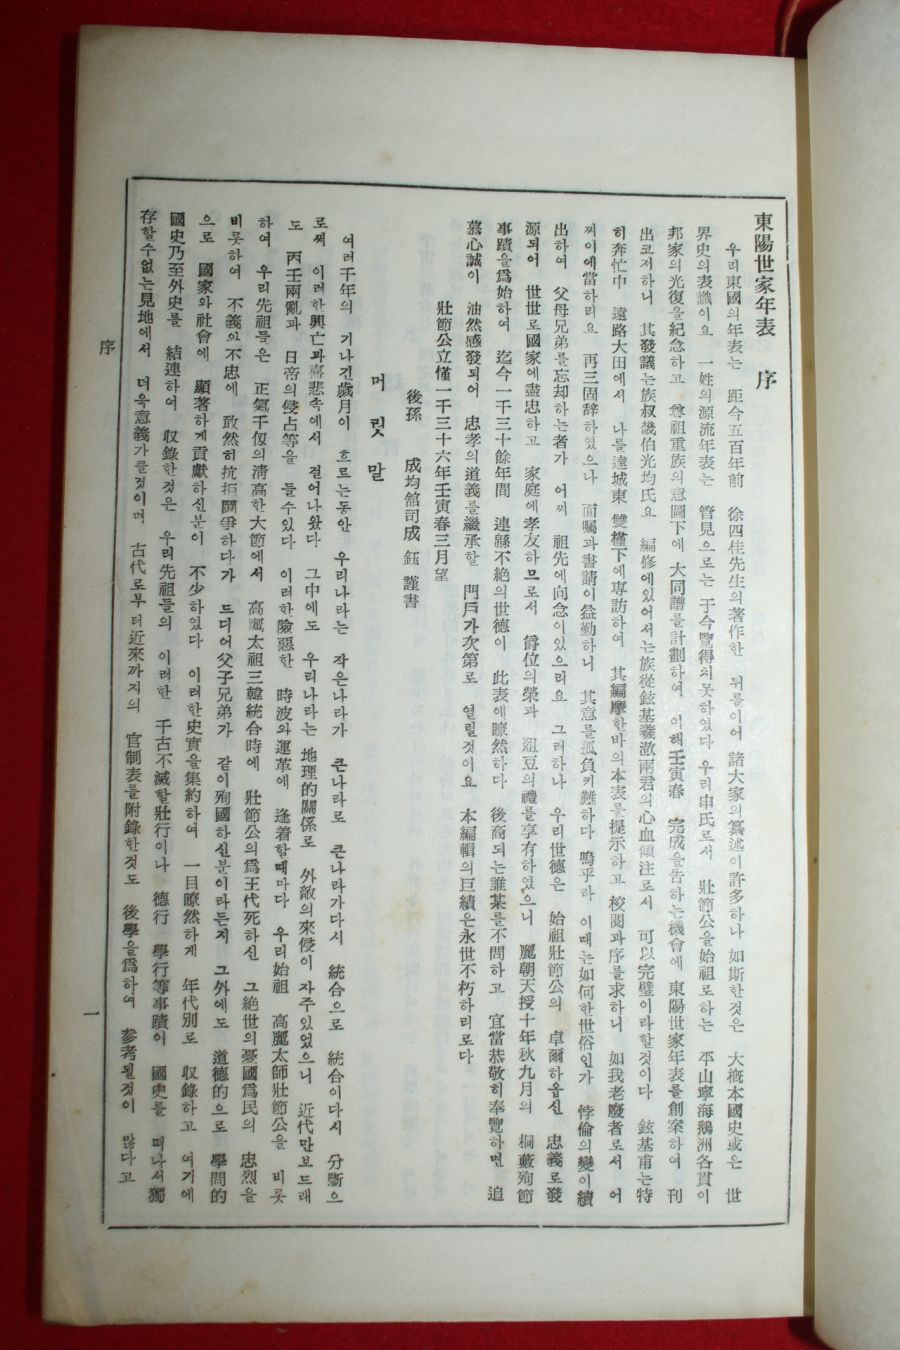 東陽世家年表 序
우리東國의年表는 距今五百年前 徐四佳先生의著作한 뒤를이어 諸大家의纂述이許多하나 如斯한것은 大槪本國史或은 世
界史의表識이요 一姓의源流年表는 管見으로는 于今覽得치못하였다 우리申氏로서 壯節公을始祖로하는 平山寧海鵝洲各貫이
邦家의光復을紀念하고 尊祖重族의意圖下에 大同譜를計劃하여 이해壬寅春 完成을告하는機會에 東陽世家年表를創案하여 刊
出코저하니 其發議는族叔畿伯光均氏요 編修에있어서는族從鉉基羲澈兩君의心血傾注로서 可以完璧이라할것이다 鉉基甫는特
히奔忙中 遠路大田에서 나를達城東 雙槿下에專訪하여 其編摩한바의本表를提示하고校閱과序를求하니 如我老廢者로서 어
찌이에當하리요 再三固辞하였으나 面囑과書請이益勤하니 其意를孤負키難하다 嗚乎라 이때는如何한世俗인가 悖倫의變이續
出하여 父母兄弟를忘却하는者가 어찌 祖先에向念이있으리요 그러하나 우리世德은 始祖壯節公의 卓爾하옵신 忠義로發
源되어 世世로國家에盡忠하고 家庭에孝友하므로서 爵位의榮과 俎豆의禮를享有하였으니 麗朝天授十年秋九月의 桐藪殉節
事蹟을爲始하여 迄今一千三十餘年間 連緜不絶의世德이 此表에瞭然하다 後裔되는誰某를不問하고 宜當恭敬히奉覽하면 追
慕心誠이 油然感發되어 忠孝의道義를繼承할 門戶가次第로 열릴것이요 本編輯의巨績은永世不朽하리로다
壯節公立慬一千三十六年壬寅春三月望
後孫 成均舘司成 鈺 謹書
머릿말
여러千年의 기나긴歲月이 흐르는동안 우리나라는 작은나라가 큰나라로 큰나라가다시 統合으로 統合이다시 分斷으
로써 이러한興亡과喜悲속에서 걸어나왔다 그中에도 우리나라는 地理的關係로 外敵의來侵이자주있었으니 近代만보드래
도 丙壬兩亂과 日帝의侵占等을 들수있다 이러한險惡한 時波와運革에 逢着할때마다 우리始祖 高麗太師壯節公을 비롯
하여 우리先祖들은 正氣千仭의淸高한大節에서 高麗太祖三韓統合時에 壯節公의爲王代死하신 그絶世의憂國爲民의 忠烈을
비롯하여 不義와不忠에 敢然히抗拒鬪爭하다가 드디어父子兄弟가 같이殉國하신분이라든지 그外에도 道德的으로 學問的
으로 國家와社會에 顯著하게貢獻하신분이 不少하였다 이러한史實을集約하여 一目瞭然하게 年代別로 収錄하고 여기에
國史乃至外史를 結連하여 収錄한것은 우리先祖들의 이러한 千古不滅할壯行이나 德行 學行等事蹟이 國史를 떠나서獨
存할수없는見地에서 더욱意義가클것이며 古代로부터近來까지의 官制表를附錄한것도 後學을爲하여 參考될것이 많다고
序
一